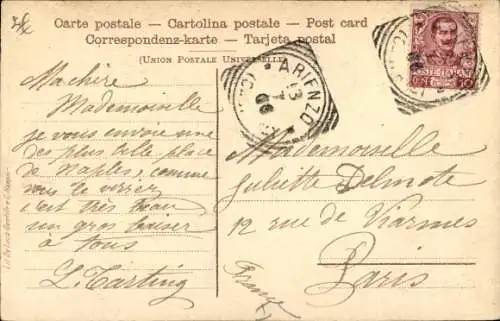 Carte postale - Cartolina postale - Post card
Correspondenz-karte - Tarjeta postal
(UNION POSTALE UNIVERSELLE)
ARIENZO
13
7
06
POSTE ITALIANE
Ma chère
Mademoiselle
je vous envoie une
des plus belle place
de Naples, comme
vous le verrez
c'est très beau
un gros baiser
à tous
Mademoiselle
Juliette Delmote
12 rue de Viarmes
Paris
France